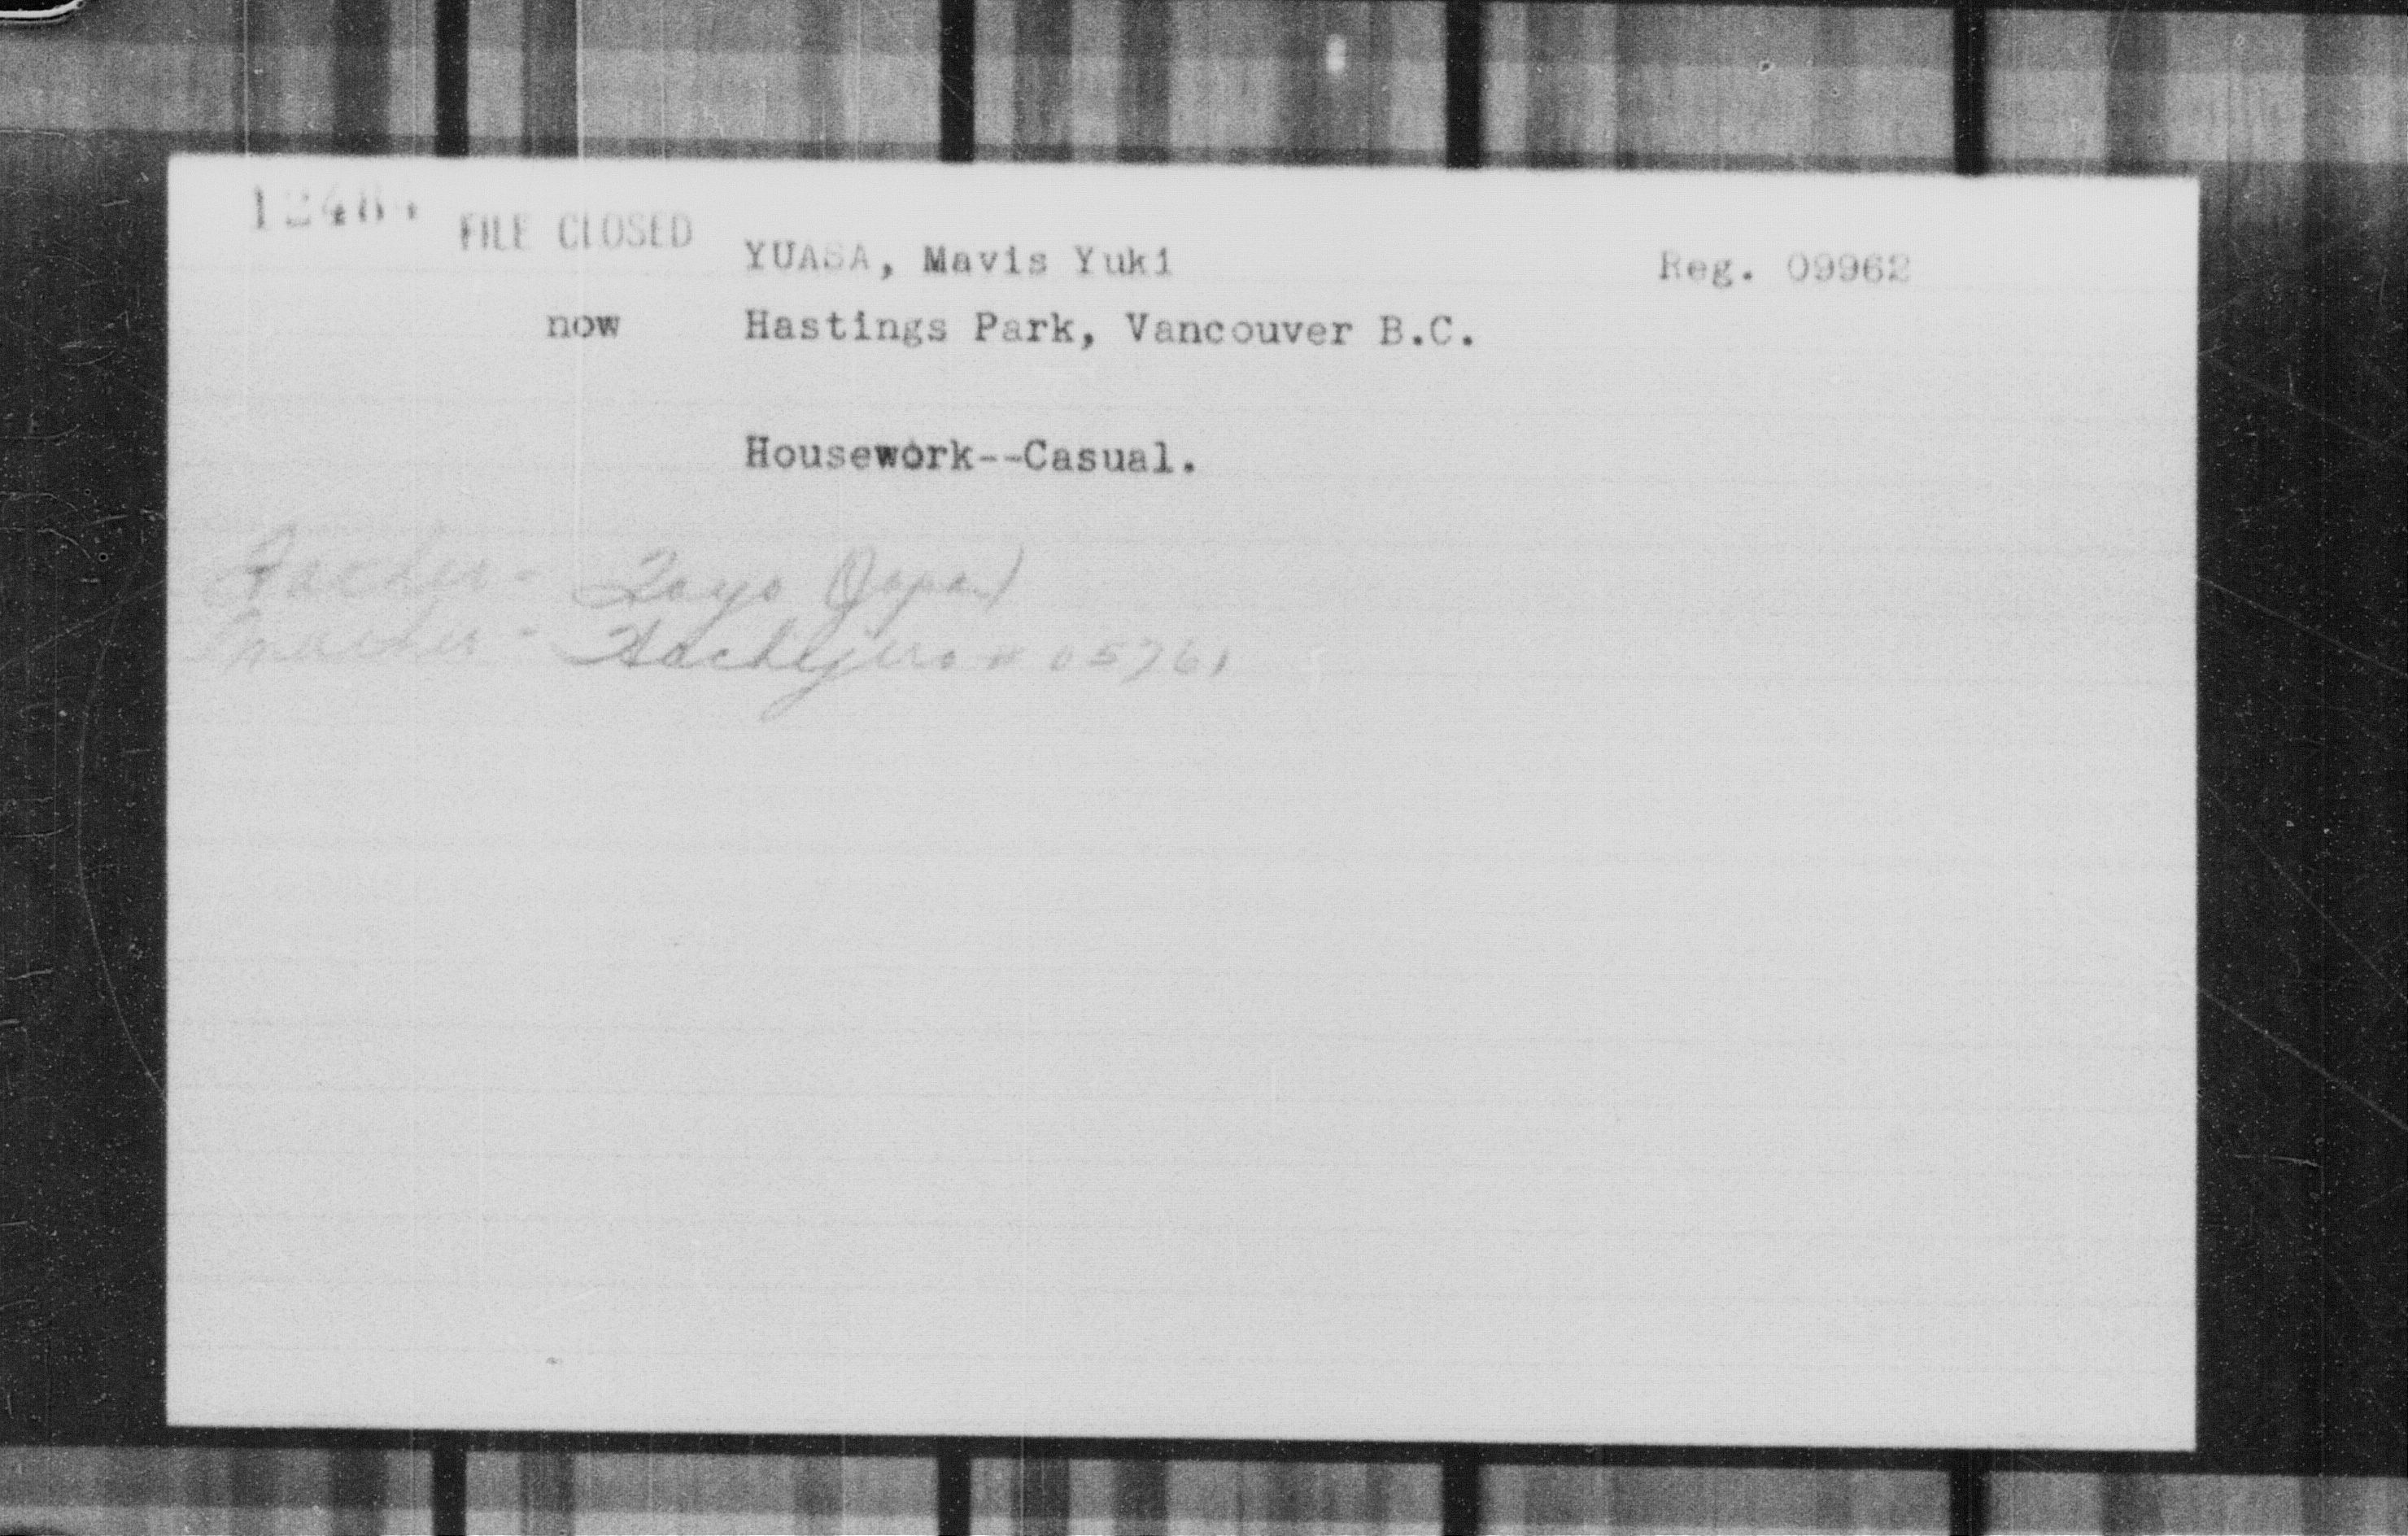 FILE CLOSED
YUASA, Mavis Yuki Reg. 09962
now Hastings Park, Vancouver B.C.
Housework--Casual.
Father - (Japan)
Mother - 05761